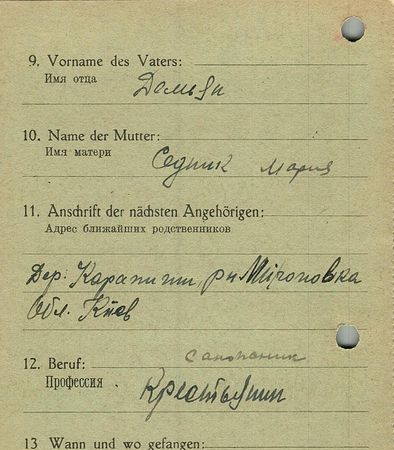 9. Vorname des Vaters:
Имя отца
Дольян
10. Name der Mutter:
Имя матери
Седник Мария
11. Anschrift der nächsten Angehörigen:
Адрес ближайших родственников
Дер. Карапиши рн Міроновка
Обл. Киев
12. Beruf:
Профессия
Крестьянин
13 Wann und wo gefangen: